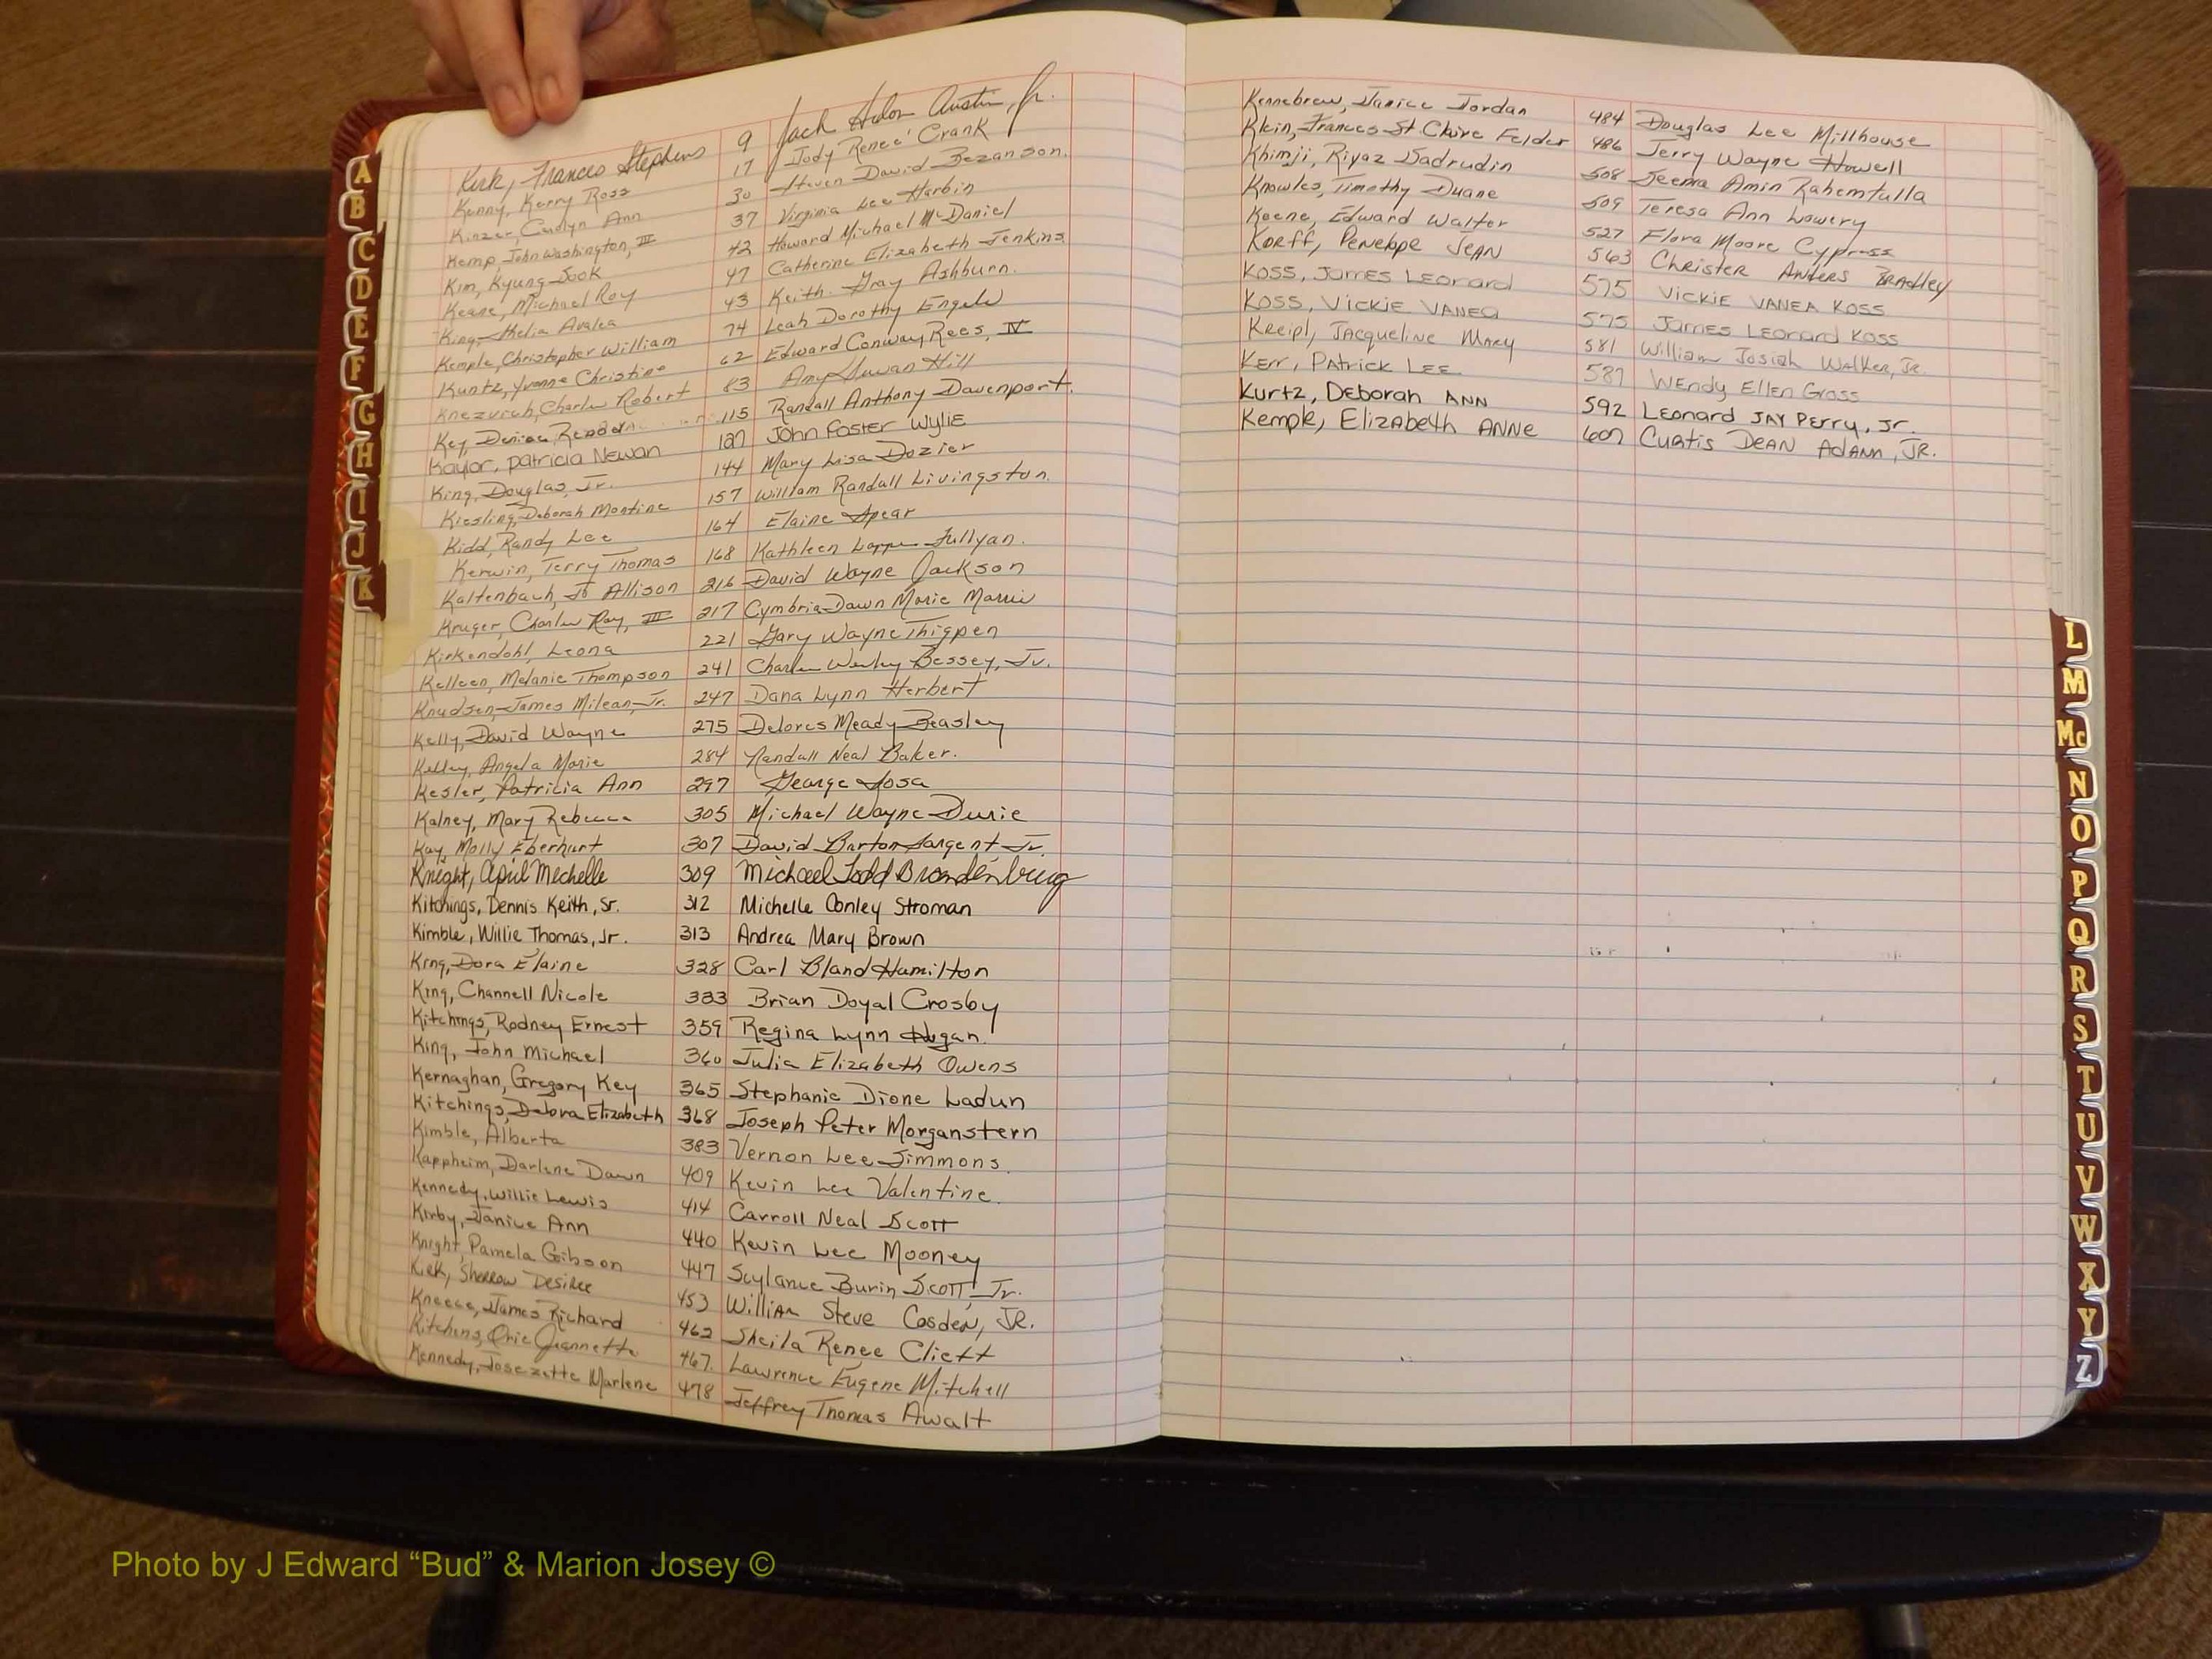 A
B
C
D
E
F
G
H
I
J
K
Kirk, Frances Stephens 9 Jack Aden Austin, Jr.
Kenny, Kerry Ross 17 Jody Renee' Crank
Kinzer, Carolyn Ann 30 Steven David Bezanson.
Kemp, John Washington, III 37 Virginia Lee Harbin
Kim, Kyung Sook 42 Howard Michael McDaniel
Keane, Michael Roy 47 Catherine Elizabeth Jenkins
King, Avalea 43 Keith Gray Ashburn.
Kemple, Christopher William 74 Leah Dorothy Engels
Kuntz, Yvonne Christine 62 Edward Conway Rees, IV
Knezvich, Charles Robert 83 Amy Susan Hill
Key, Denise 115 Randall Anthony Davenport.
Kaylor, Patricia Newan 127 John Foster Wylie
King, Douglas, Jr. 144 Mary Lisa Dozier
Kiesling, Deborah Montine 157 William Randall Livingston.
Kidd, Randy Lee 164 Elaine Spear
Kerwin, Terry Thomas 168 Kathleen Fullyan.
Kaltenbach, Jo Allison 216 David Wayne Jackson
Kruger, Charles Ray, III 217 Cymbria Dawn Marie
Kirkendohl, Leona 221 Gary Wayne Thigpen
Kelleen, Melanie Thompson 241 Charles Wesley Bessey, Jr.
Knudsen, James Milean, Jr. 247 Dana Lynn Herbert
Kelly, David Wayne 275 Delores Meady Beasley
Kelley, Angela Marie 284 Randall Neal Baker.
Kesler, Patricia Ann 297 George Sosa
Kalney, Mary Rebecca 305 Michael Wayne Durie
Kay, Molly Eberhart 307 David Barton Sargent Jr.
Knight, April Mechelle 309 Michael Todd Brandenburg
Kitchings, Dennis Keith, Sr. 312 Michelle Conley Stroman
Kimble, Willie Thomas, Jr. 313 Andrea Mary Brown
King, Dora Elaine 328 Carl Bland Hamilton
King, Channell Nicole 333 Brian Doyal Crosby
Kitchings, Rodney Ernest 359 Regina Lynn Hogan.
King, John Michael 360 Julia Elizabeth Owens
Kernaghan, Gregory Key 365 Stephanie Dione Ladun
Kitchings, Debora Elizabeth 368 Joseph Peter Morganstern
Kimble, Alberta 383 Vernon Lee Simmons.
Kappheim, Darlene Dawn 409 Kevin Lee Valentine.
Kennedy, Willie Lewis 414 Carroll Neal Scott
Kirby, Janice Ann 440 Kevin Lee Mooney
Knight, Pamela Gibson 447 Scylance Burin Scott, Jr.
Kirk, Sherrow Desiree 453 William Steve Cosden, JR.
Kneece, James Richard 462 Sheila Renee Cliett
Kitchens, Orie Jeannette 467. Lawrence Eugene Mitchell
Kennedy, Josezette Marlene 478 Jeffrey Thomas Awalt
Kennebrew, Janice Jordan 484 Douglas Lee Millhouse
Klein, Frances St. Claire Felder 486 Jerry Wayne Howell
Khimji, Riyaz Sadrudin 508 Seema Amin Rahemtulla
Knowles, Timothy Duane 509 Teresa Ann Lowery
Keene, Edward Walter 527 Flora Moore Cypress
Korff, Penelope Jean 563 Christer Anders Bradley
Koss, James Leonard 575 Vickie Vanea Koss
Koss, Vickie Vanea 575 James Leonard Koss
Kreipl, Jacqueline Mary 581 William Josiah Walker, Jr.
Kerr, Patrick Lee 587 Wendy Ellen Gross
Kurtz, Deborah Ann 592 Leonard Jay Perry, Jr.
Kemple, Elizabeth Anne 607 Curtis Dean Adann, JR.
L
M
Mc
N
O
P
Q
R
S
T
U
V
W
X
Y
Z
Photo by J Edward “Bud” & Marion Josey ©